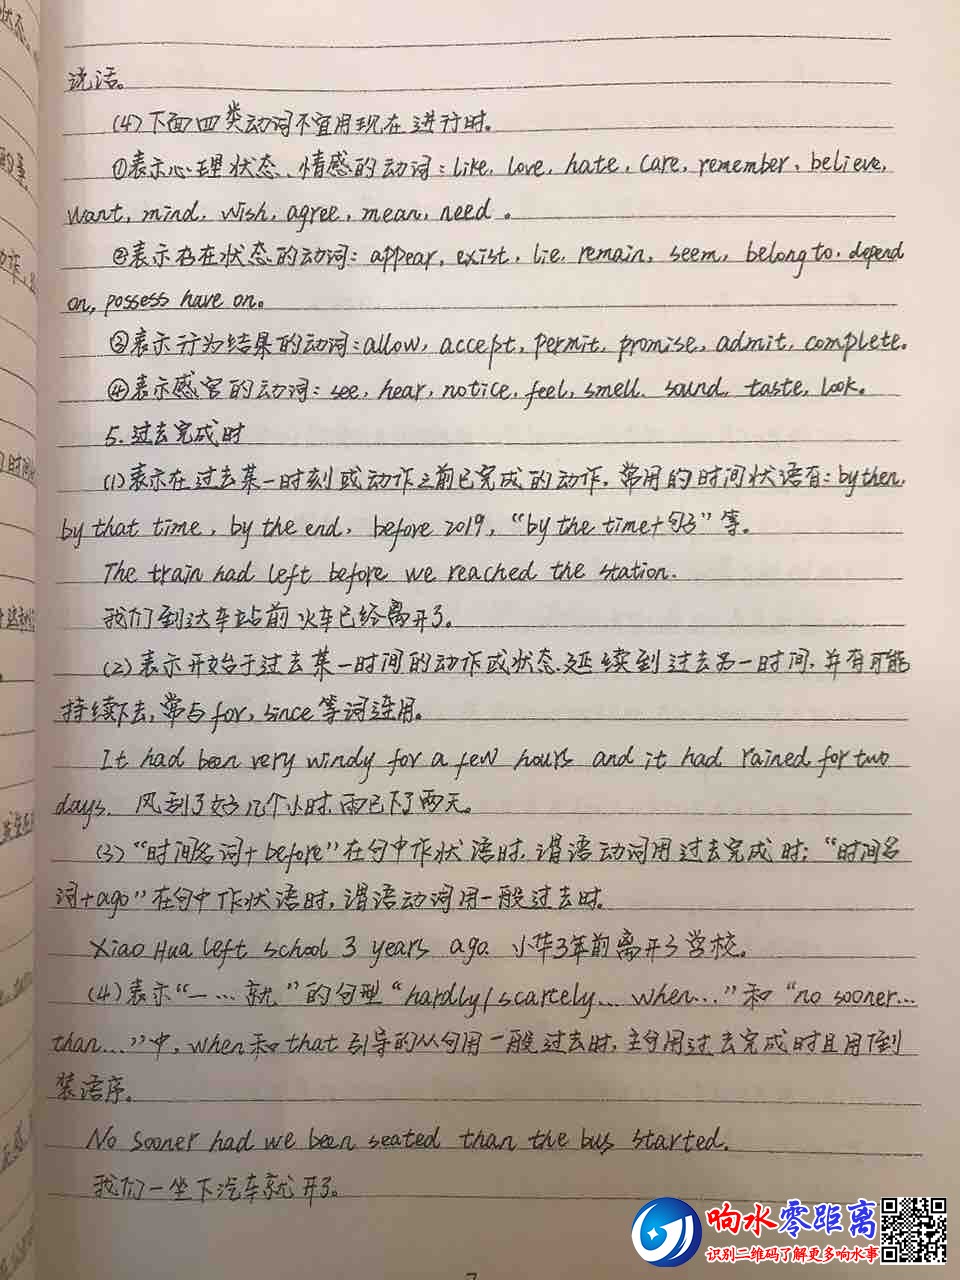 说话。
(4)下面四类动词不宜用现在进行时。
①表示心理状态、情感的动词：like, love, hate, care, remember, believe,
want, mind, wish, agree, mean, need。
②表示存在状态的动词：appear, exist, lie, remain, seem, belong to, depend
on, possess have on。
③表示行为结果的动词：allow, accept, permit, promise, admit, complete。
④表示感官的动词：see, hear, notice, feel, smell, sound, taste, look。
5. 过去完成时
(1)表示在过去某一时刻或动作之前已完成的动作，常用的时间状语有：by then,
by that time, by the end, before 2019, “by the time+句子”等。
The train had left before we reached the station.
我们到达车站前火车已经离开了。
(2)表示开始于过去某一时间的动作或状态延续到过去另一时间，并有可能
持续下去，常与for, since等词连用。
It had been very windy for a few hours and it had rained for two
days. 风刮了好几个小时，雨已下了两天。
(3)“时间名词+before”在句中作状语时，谓语动词用过去完成时；“时间名
词+ago”在句中作状语时，谓语动词用一般过去时。
Xiao Hua left school 3 years ago. 小华3年前离开了学校。
(4)表示“一…就”的句型“hardly/scarcely… when…”和“no sooner…
than…”中，when和that引导的从句用一般过去时，主句用过去完成时且用倒
装语序。
No sooner had we been seated than the bus started.
我们一坐下汽车就开了。
响水零距离
识别二维码了解更多响水事